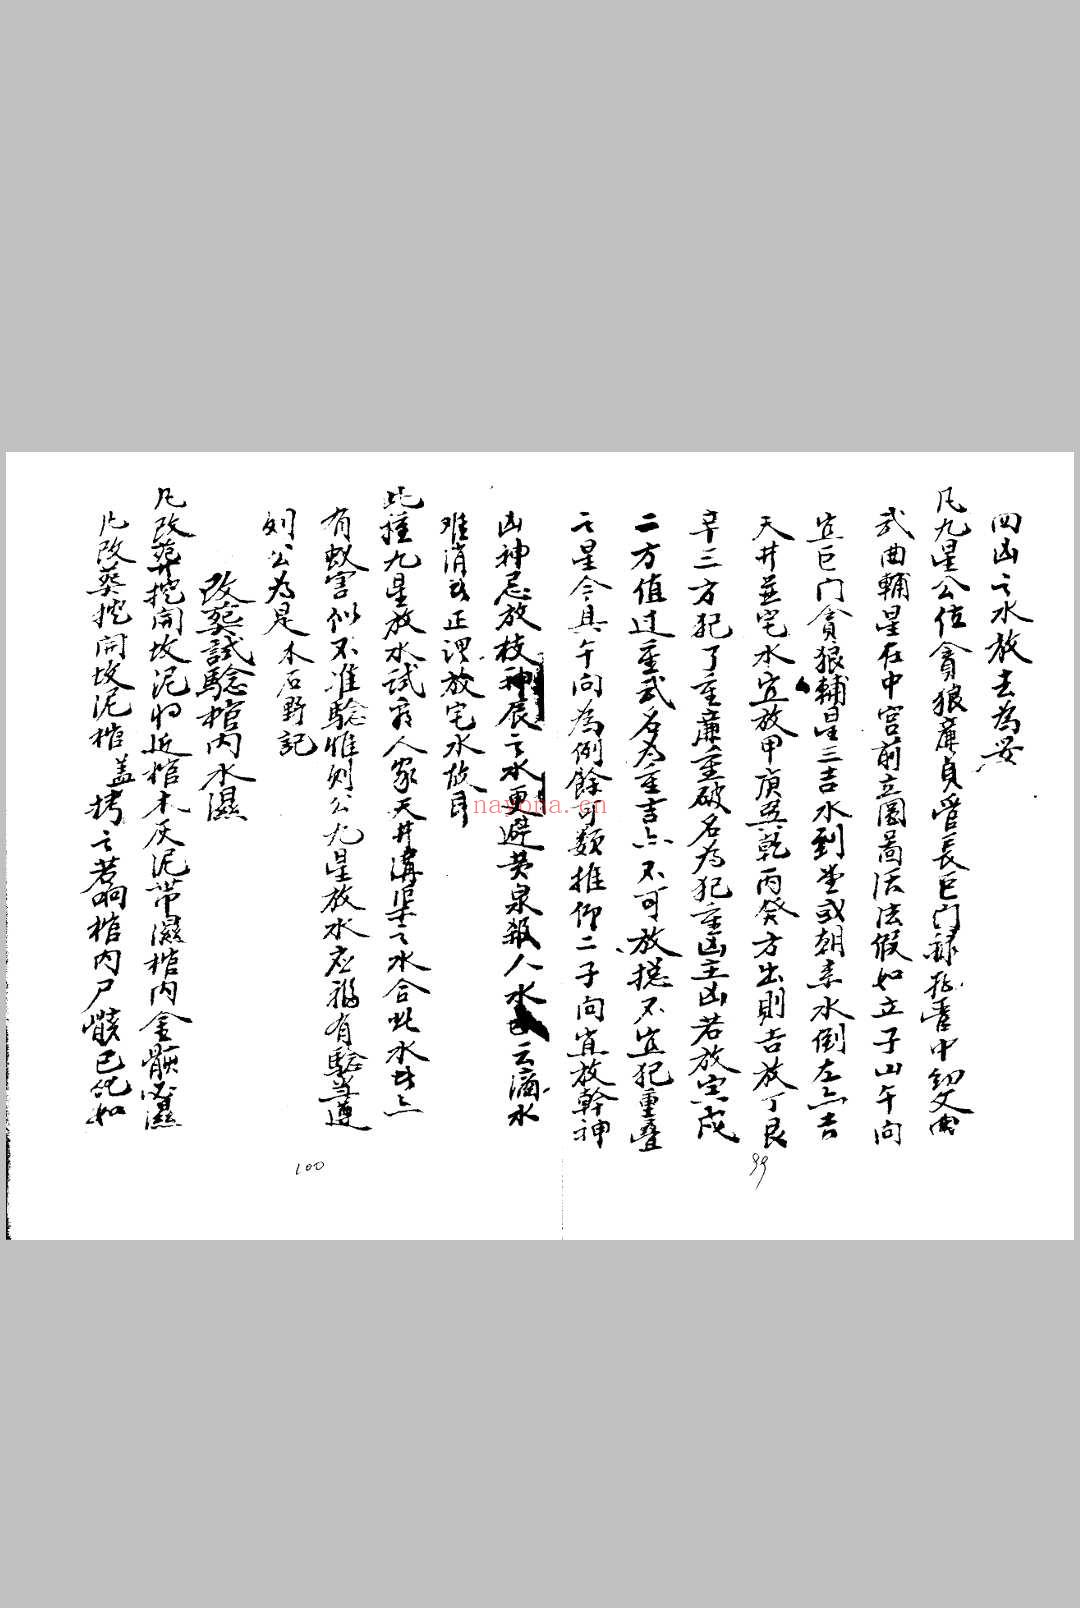 四凶之水放去為安
凡九星公位貪狼廉貞受長巨门祿存管中幼文曲
武曲輔星在中宮前立圖局活法假如立子山午向
宜巨门貪狼輔星三吉水到堂或朝来水倒左亦吉
天井並宅水宜放甲庚巽乾丙癸方出則吉放丁艮
辛三方犯了重廉重破名為犯重凶主凶若放寅戌
二方值过重武名為重吉亦不可放揔不宜犯重叠
之星今具午向為例餘可類推仰二子向宜放幹神
凶神忌放枝神辰之水更避黄泉殺人水也云滴水
难消者正谓放宅水故耳
此推九星放水試看人家天井溝渠之水合此水者亦
有蚁害似不准驗惟刘公九星放水应福有驗当遵
刘公為是木石野記
改葬試驗棺内水濕
凡改葬挖開坟泥将近棺木灰泥带濕棺内金骸必濕
凡改葬挖開坟泥棺盖拷之若响棺内尸骸已化如
99
100
nayona.cn